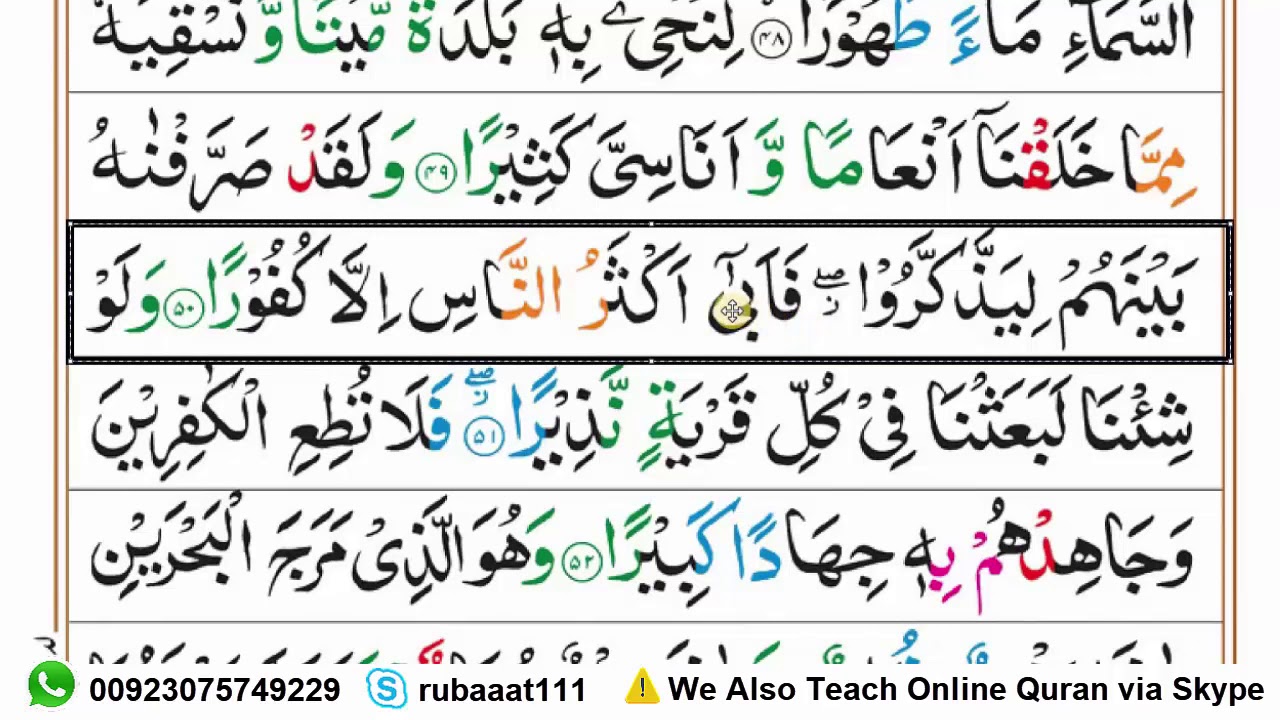 السَّمَآءِ مَآءً طَهُوْرًا ۟۴۸ لِّنُحْیِۦَ بِهٖ بَلْدَةً مَّیْتًا وَّ نُسْقِیَهٗ
مِمَّا خَلَقْنَاۤ اَنْعَامًا وَّ اَنَاسِیَّ كَثِیْرًا ۟۴۹ وَ لَقَدْ صَرَّفْنٰهُ
بَیْنَهُمْ لِیَذَّكَّرُوْا ۖؗ فَاَبٰۤی اَكْثَرُ النَّاسِ اِلَّا كُفُوْرًا ۟۵۰ وَ لَوْ
شِئْنَا لَبَعَثْنَا فِیْ كُلِّ قَرْیَةٍ نَّذِیْرًا ۟ؗۖ۵۱ فَلَا تُطِعِ الْكٰفِرِیْنَ
وَ جَاهِدْهُمْ بِهٖ جِهَادًا كَبِیْرًا ۟۵۲ وَ هُوَ الَّذِیْ مَرَجَ الْبَحْرَیْنِ
00923075749229 rubaaat111 We Also Teach Online Quran via Skype